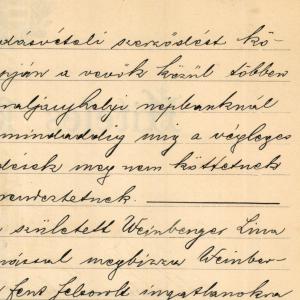 dásvételi szerződést kö-
pján a vevők közül többen
raljaujhelyi népbanknál
mindaddig míg a végleges
dések meg nem köttetnek
rendeztetnek.
született Weinberger Lina
mással megbizza Weinber-
fent felsorolt ingatlanokra